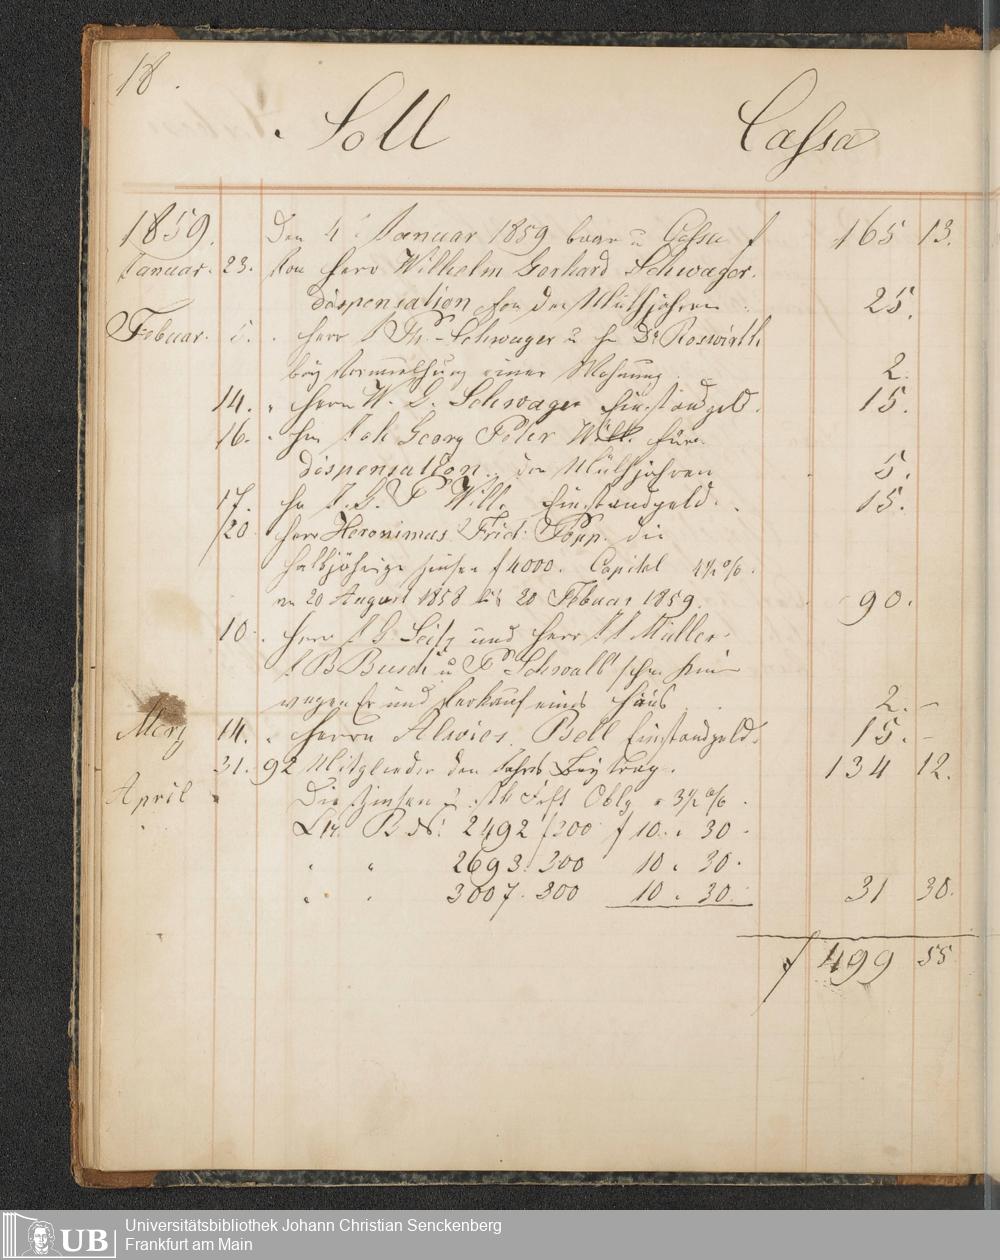 18.
Soll Cassa
1859. Den 4t Januar 1859 baar u Cassa f 165 13.
Januar. 23. Von Herr Wilhelm Gerhard Schwager.
dispensation von den Muthjahren 25.
Febuar. 5. Herr Schwager u H Dr Roswirth
bey Vermiethung einer Wohnung. 2.
14. " Herrn W. G. Schwager Einstandgeld. 15.
16. " Hrn Joh Georg Peter Will für
dispensation den Muthjahren 5.
17. Hr J. G. P Will. Einstandgeld. 15.
20 Herr Heronimus Frid: Popp. die
halbjährige Zinsen f 4000. Capital 4½ %.
20 August 1858 bis 20 Febuar 1859. 90.
10. Herr J G. Seitz und Herr Müller
J B Busch u P Schwalb
wegen und Verkauf eines Haus 2. –
Merz 14. " Herrn Aloies Bell Einstandgeld. 15. –
31. 92 Mitglieder den Jahrs Beytrag. 134 12.
April Die Zinsen Oblg a 3½ %.
Ltr. B No: 2492 f 300 f 10. " 30.
" " 2693. 300 10 " 30.
" " 3007. 300 10 " 30. 31 30.
f 499 55
Universitätsbibliothek Johann Christian Senckenberg
Frankfurt am Main
UB